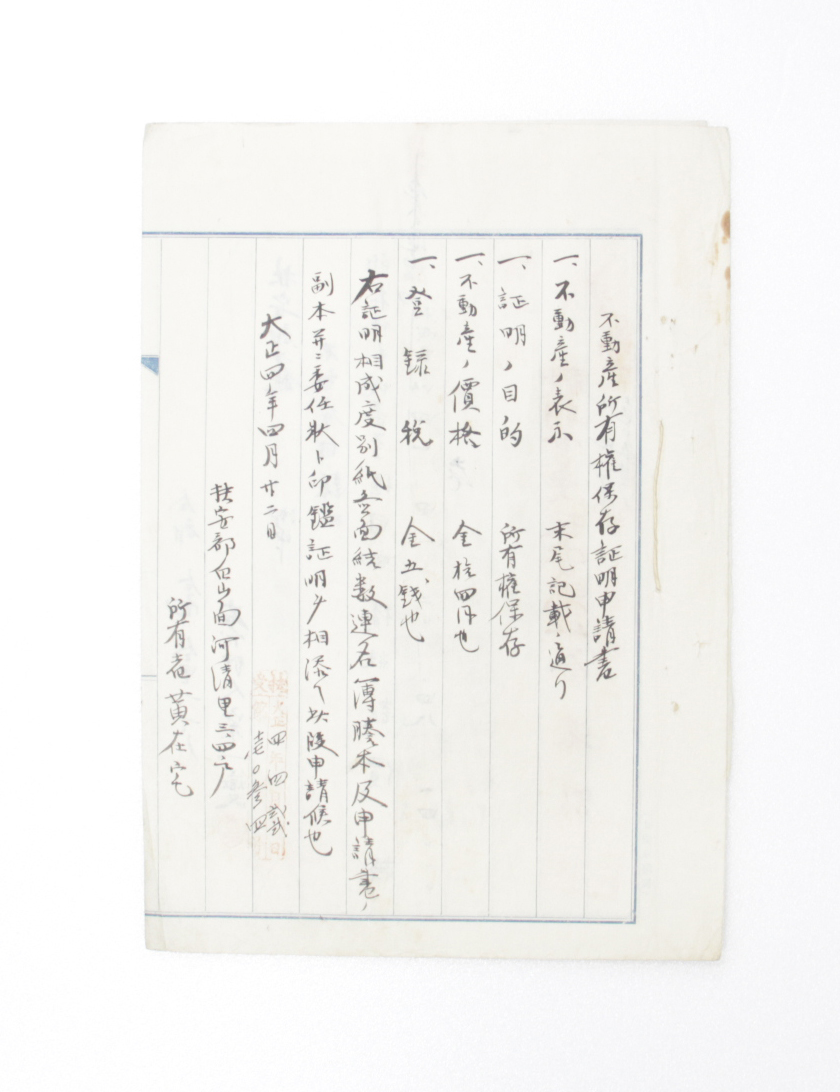 不動産所有権保存証明申請書
一、不動産ノ表示 末尾記載ノ通リ
一、証明ノ目的 所有権保存
一、不動産ノ價格 金拾四円也
一、登録税 金五銭也
右証明相成度別紙 面結数連名簿謄本及申請書ノ
副本并ニ委任状ト印鑑証明ヲ相添ヘ此段申請候也
大正四年四月廿二日
四 四 弐弐
壱〇参四
扶安郡白山面河清里三、四戸
所有者 黄在宅